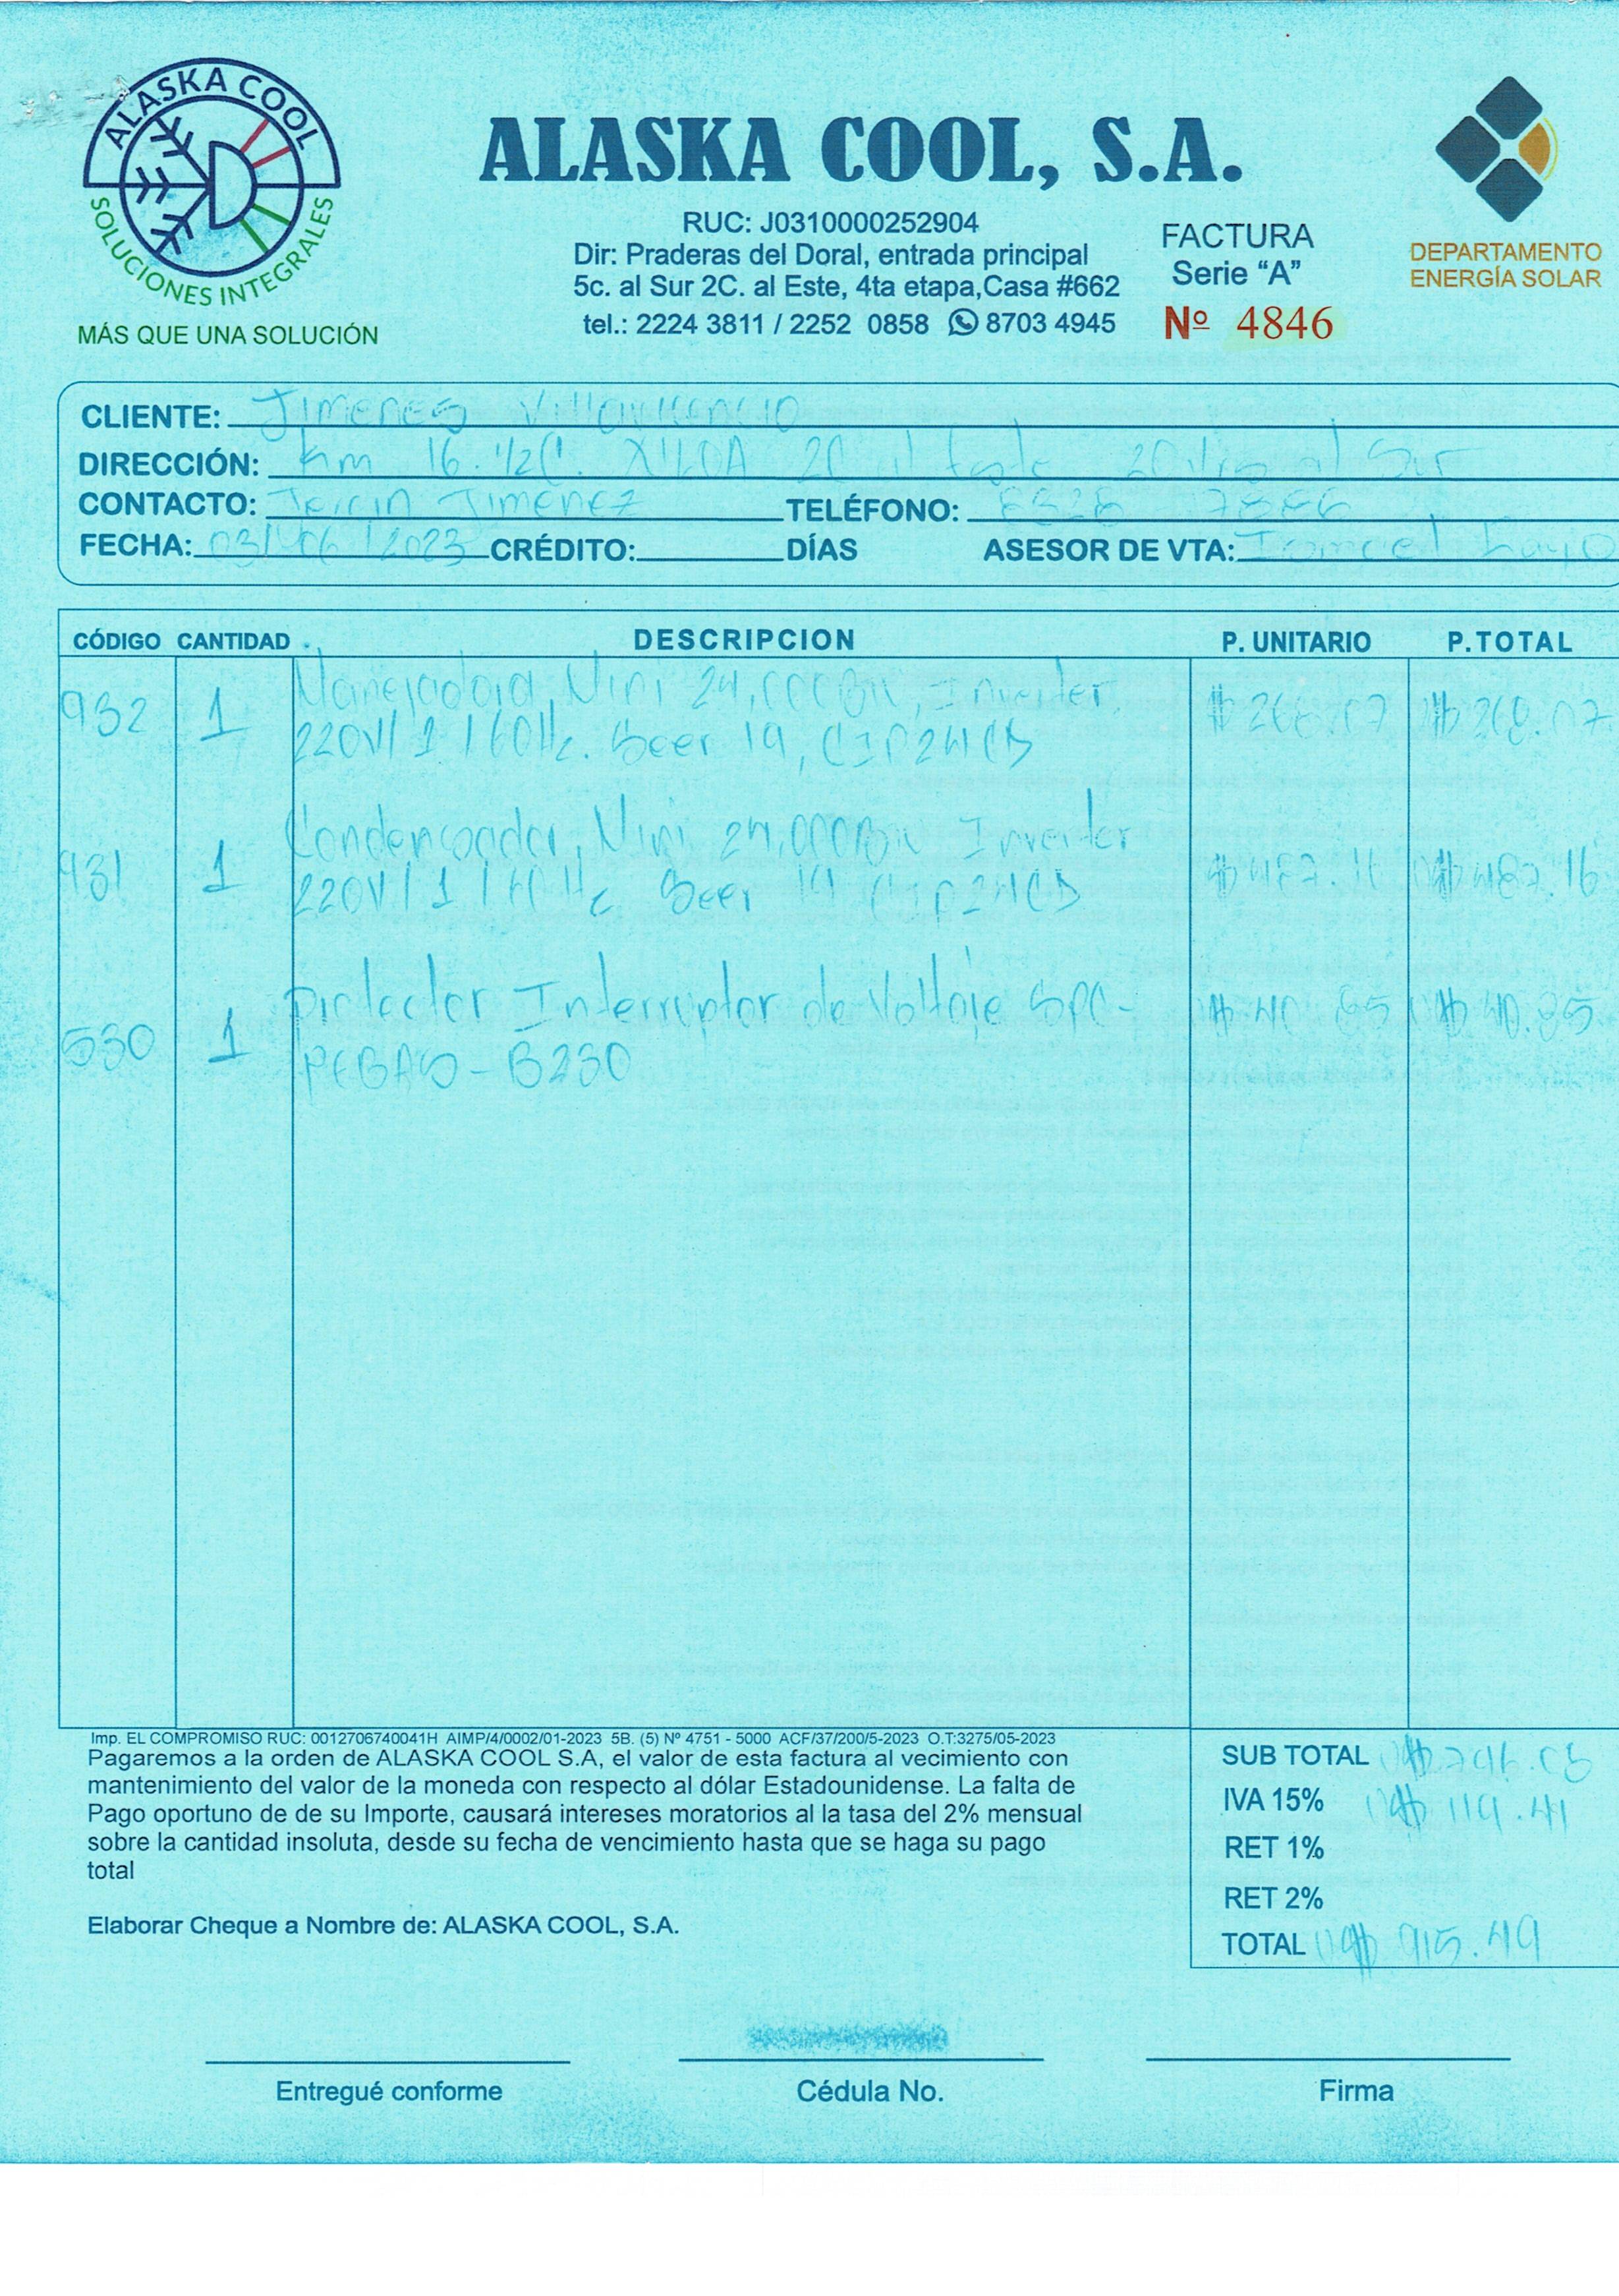 ALASKA COOL
SOLUCIONES INTEGRALES
MÁS QUE UNA SOLUCIÓN
ALASKA COOL, S.A.
RUC: J0310000252904
Dir: Praderas del Doral, entrada principal
5c. al Sur 2C. al Este, 4ta etapa,Casa #662
tel.: 2224 3811 / 2252 0858 8703 4945
FACTURA
Serie “A”
Nº 4846
DEPARTAMENTO
ENERGÍA SOLAR
CLIENTE: Jimenes Villavicencio
DIRECCIÓN: Km 16. 1/2 C. XILOA 2C al al Sur
CONTACTO: Jimenez TELÉFONO:
FECHA: 03/06/2023 CRÉDITO: DÍAS ASESOR DE VTA:
CÓDIGO CANTIDAD DESCRIPCION P. UNITARIO P.TOTAL
932 1 Manejadora, Mini 24,000Btu, Inverter, $ 268.07 $ 268.07
220V/1/60Hz. Seer 19,
931 1 Condensador, Mini 24,000Btu Inverter $ 487.16 $ 487.16
220V/1/60Hz Seer 19
530 1 Protector Interruptor de Voltaje SPC- $ 40.85 $ 40.85
PEGAS-B230
Imp. EL COMPROMISO RUC: 0012706740041H AIMP/4/0002/01-2023 5B. (5) Nº 4751 - 5000 ACF/37/200/5-2023 O.T:3275/05-2023
Pagaremos a la orden de ALASKA COOL S.A, el valor de esta factura al vecimiento con
mantenimiento del valor de la moneda con respecto al dólar Estadounidense. La falta de
Pago oportuno de de su Importe, causará intereses moratorios al la tasa del 2% mensual
sobre la cantidad insoluta, desde su fecha de vencimiento hasta que se haga su pago
total
Elaborar Cheque a Nombre de: ALASKA COOL, S.A.
SUB TOTAL U$ 796.08
IVA 15% U$ 119.41
RET 1%
RET 2%
TOTAL U$ 915.49
Entregué conforme
Cédula No.
Firma